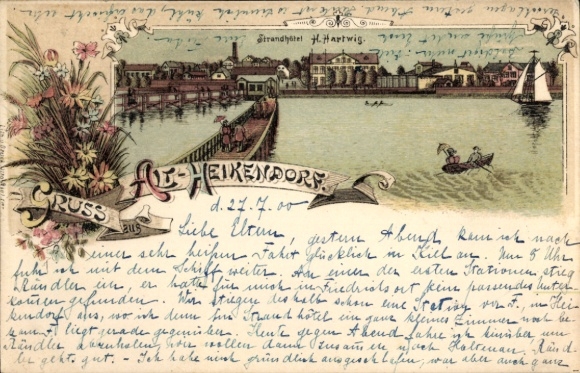 Strandhôtel H. Hartwig.
GRUSS aus
ALT-HEIKENDORF.
d. 27. 7. 00
Liebe Eltern
gestern Abend kam ich nach
einer sehr heißen Fahrt glücklich in Kiel an. Um 8 Uhr
fuhr ich mit dem Schiff weiter. An einer der ersten Stationen stieg
Kändler ein, er hatte für mich in Friedrichsort kein passendes Unter
kommen gefunden. Wir stiegen deshalb schon eine Station vor F., in Hei
kendorf aus, wo ich denn im Strandhôtel ein ganz kleines Zimmer noch be
kam. F. liegt gerade gegenüber. Heute gegen Abend fahre ich hinüber um
Kändler abzuholen, wir wollen dann zusammen nach Holtenau. Känd
ler geht's gut. - Ich habe mich gründlich ausgeschlafen, war aber auch ganz